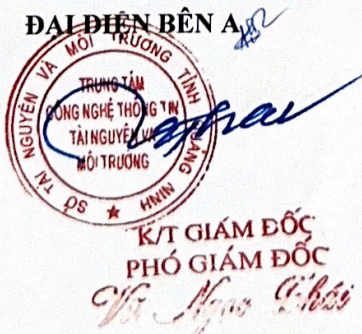 ĐẠI DIỆN BÊN A
SỞ TÀI NGUYÊN VÀ MÔI TRƯỜNG TỈNH QUẢNG NINH
TRUNG TÂM
CÔNG NGHỆ THÔNG TIN
TÀI NGUYÊN VÀ
MÔI TRƯỜNG
K/T GIÁM ĐỐC
PHÓ GIÁM ĐỐC
Vũ Ngọc Thái